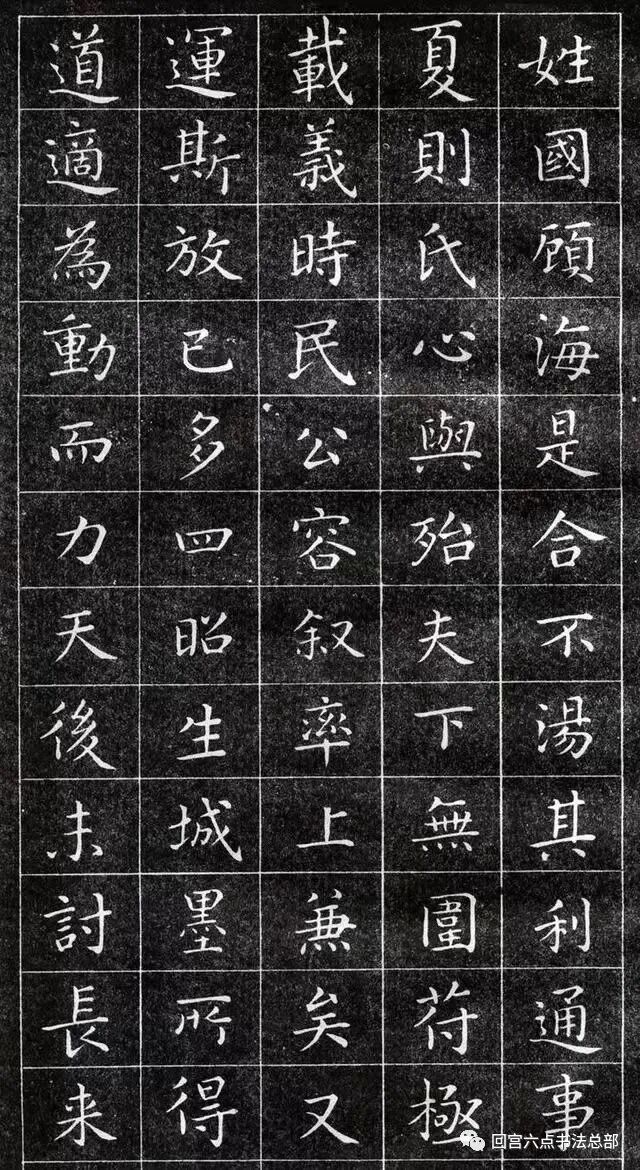 姓國顧海是合不湯其利通事
夏則氏心與殆夫下無圍苻極
載義時民公容叙率上兼矣又
運斯放已多四昭生城墨所得
道適為動而力天後未討長来
回宫六点书法总部